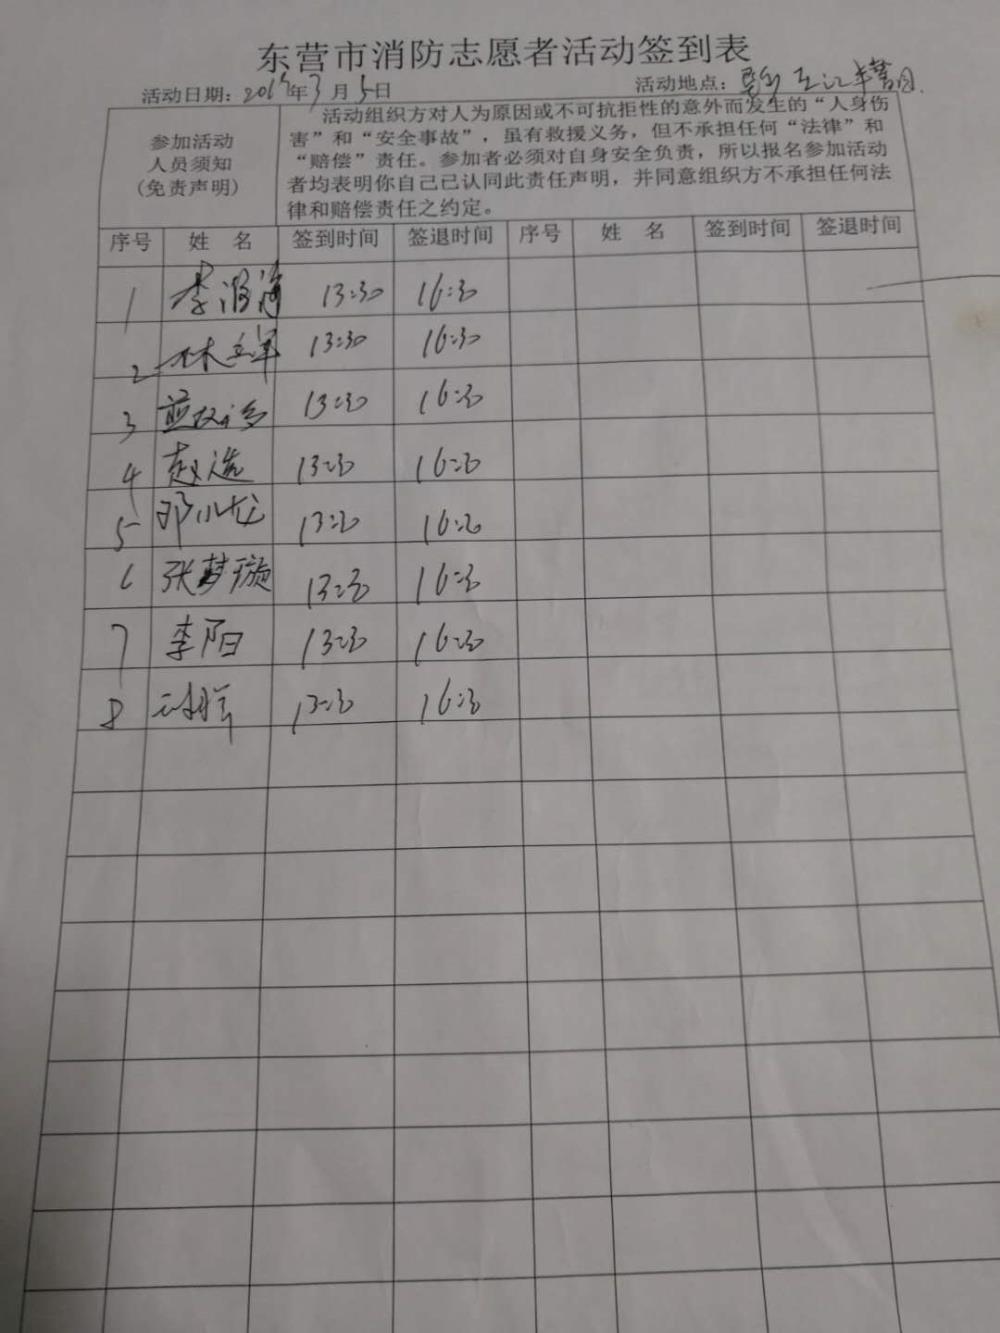 东营市消防志愿者活动签到表
活动日期: 2019年3月5日 活动地点:
参加活动
人员须知
(免责声明)
活动组织方对人为原因或不可抗拒性的意外而发生的“人身伤
害”和“安全事故”，虽有救援义务，但不承担任何“法律”和
“赔偿”责任。参加者必须对自身安全负责，所以报名参加活动
者均表明你自己已认同此责任声明，并同意组织方不承担任何法
律和赔偿责任之约定。
序号 姓 名 签到时间 签退时间 序号 姓 名 签到时间 签退时间
1 李 海 13:30 16:30
2 林 军 13:30 16:30
3 13:30 16:30
4 赵选 13:30 16:30
5 邓小龙 13:30 16:30
6 张梦璇 13:30 16:30
7 李阳 13:30 16:30
8 13:30 16:30